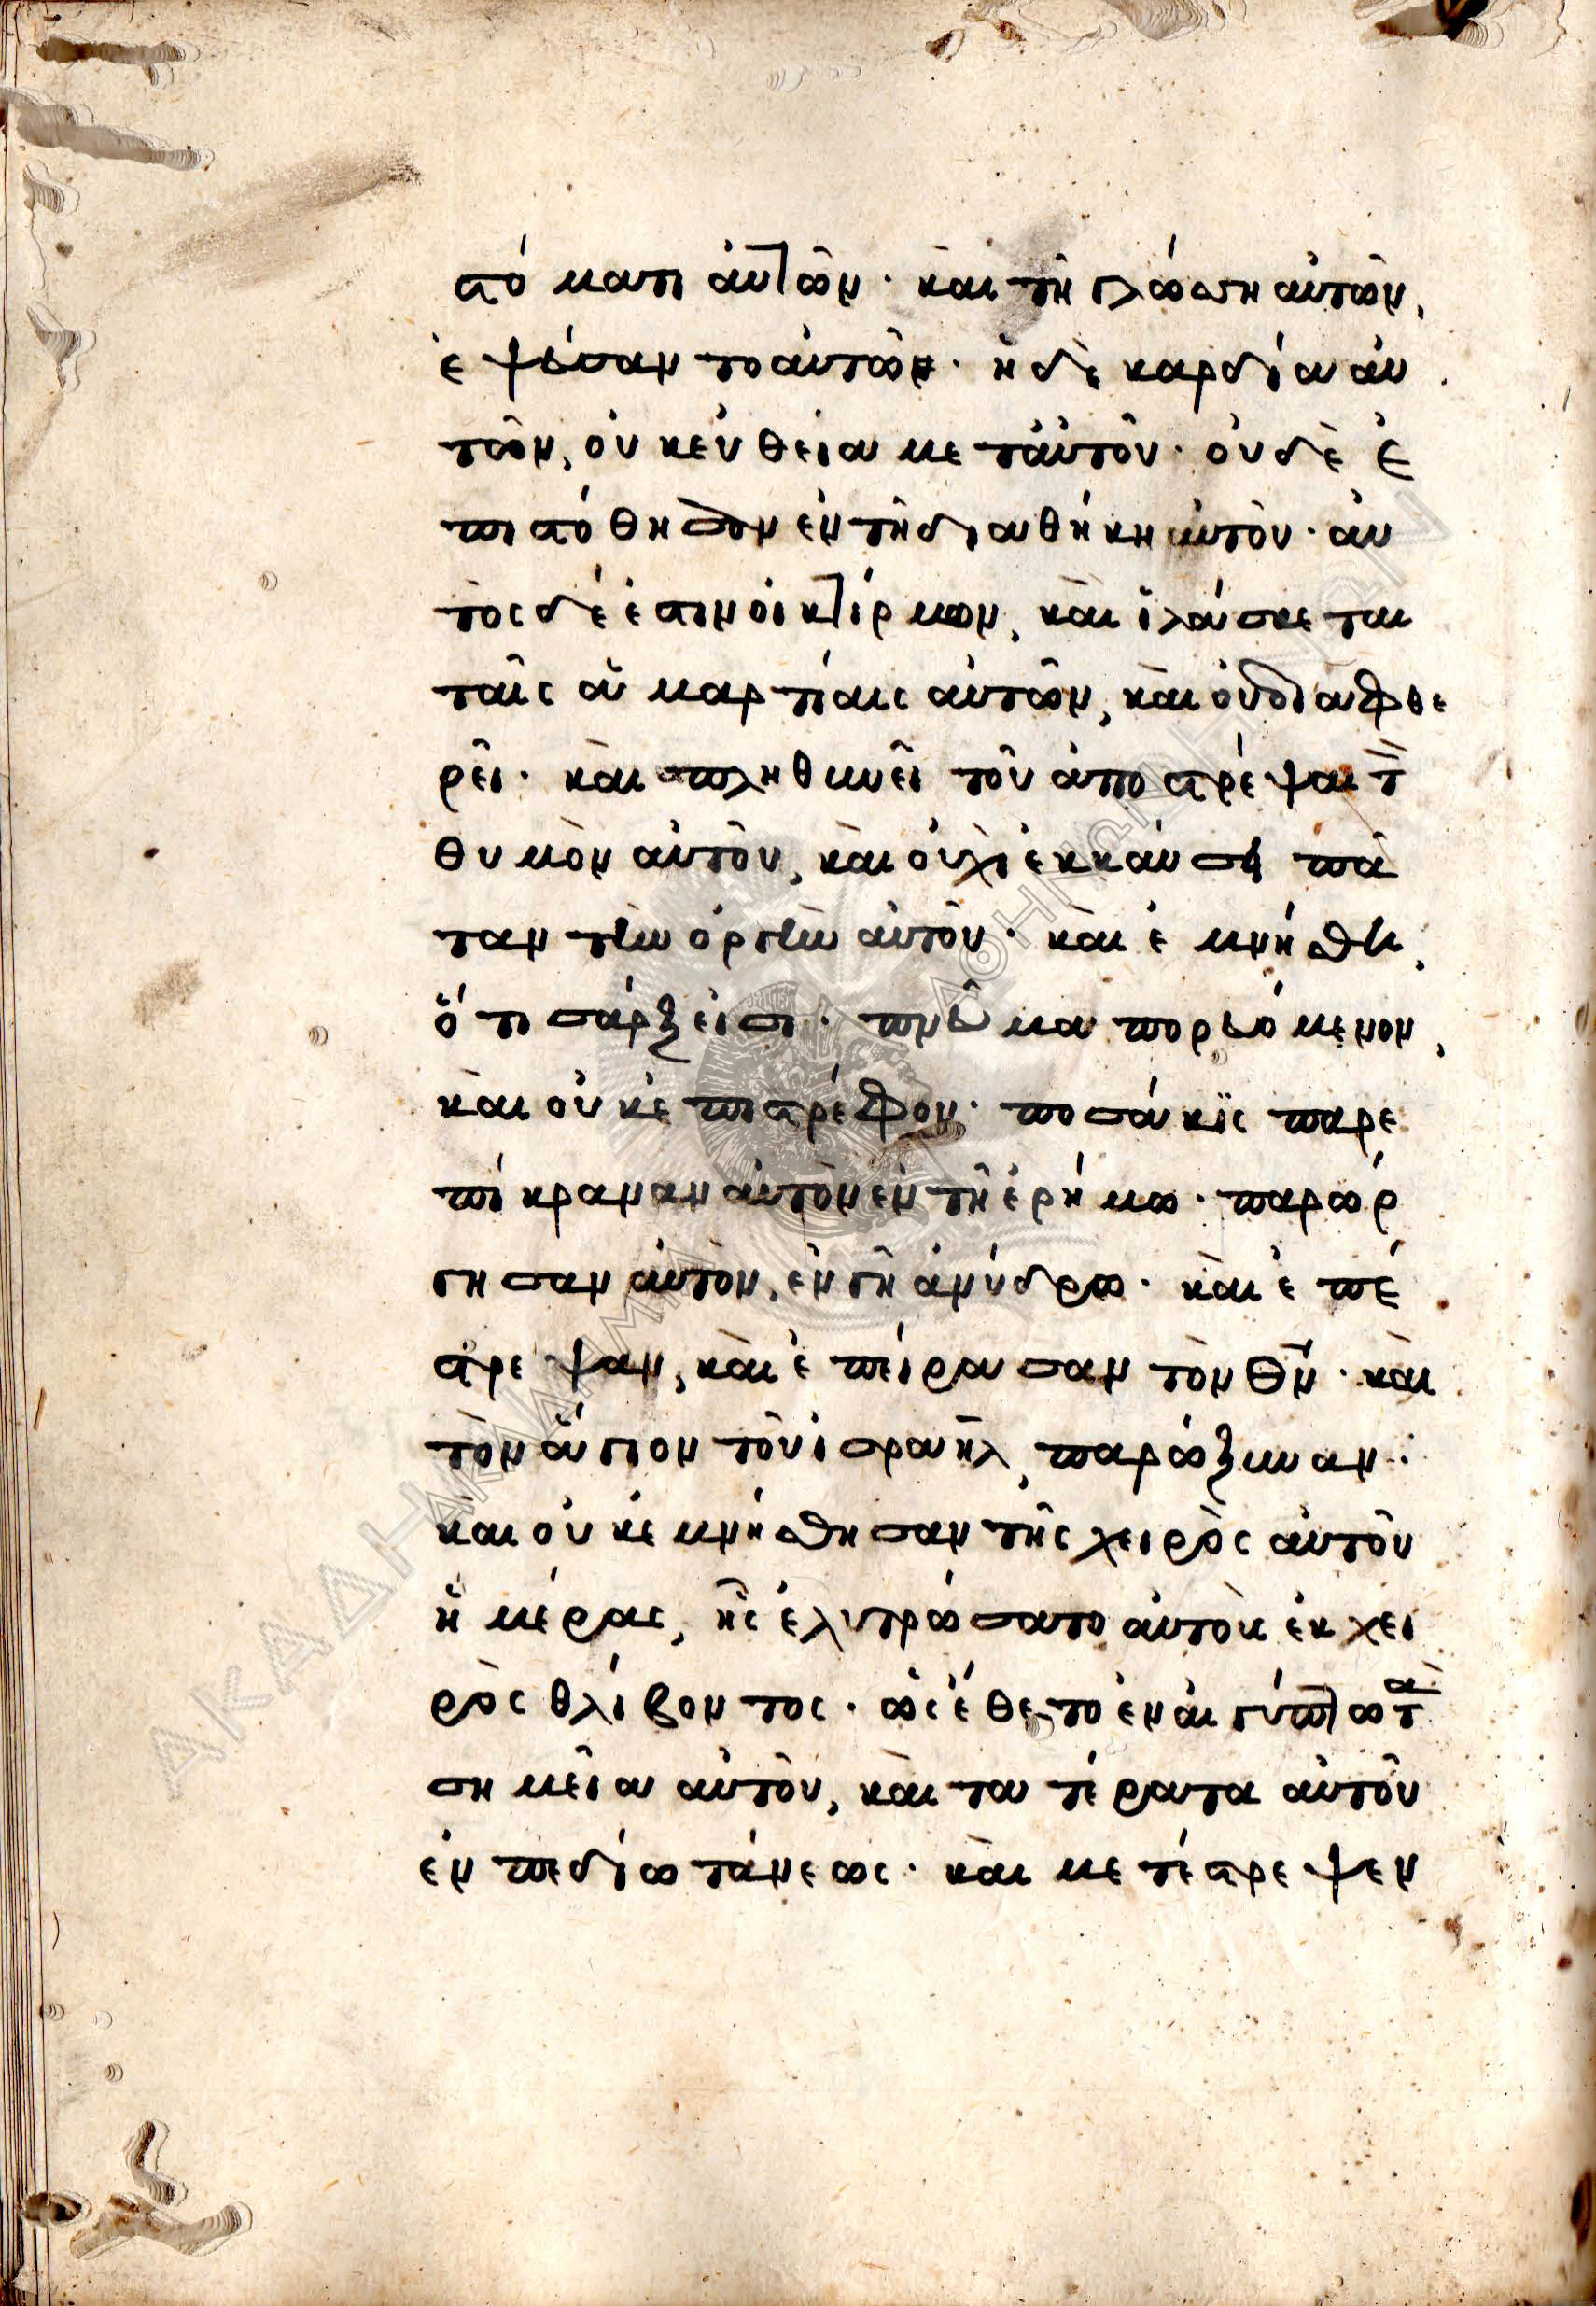 στόματι αὐτῶν· καὶ τῇ γλώσσῃ αὐτῶν,
ἐψεύσαντο αὐτῶ· ἡ δὲ καρδία αὐ
τῶν, οὐκ εὐθεῖα μετ αὐτοῦ· οὐδὲ ἐ
πιστώθησαν ἐν τῇ διαθήκη αὐτοῦ· αὐ
τὸς δέ ἐστιν οἰκτίρμων, καὶ ἱλάσκεται
ταῖς ἁμαρτίαις αὐτῶν, καὶ οὐ διαφθε
ρεῖ· καὶ πληθυνεῖ τοῦ ἀποστρέψαι τ̀
θυμὸν αὐτοῦ, καὶ οὐχὶ ἐκκαύσῃ πᾶ
σαν τὴν ὀργὴν αὐτοῦ· καὶ ἐμνήσθη,
ὅτι σάρξ εἰσι· πνεῦμα πορευόμενον,
καὶ οὐκ ἐπιστρέφον· ποσάκϊς παρε
πίκραναν αὐτὸν ἐν τῇ ἐρήμω· παρώρ
γησαν αὐτὸν, ἐν γῇ ἀνύδρω· καὶ ἐπέ
στρεψαν, καὶ ἐπείρασαν τὸν θν· καὶ
τὸν ἅγιον τοῦ ἰσραὴλ παρώξυναν:
καὶ οὐκ ἐμνήσθησαν τῆς χειρὸς αὐτοῦ
ἡμέρας, ἧς ἐλυτρώσατο αὐτοὺς ἐκ χει
ρὸς θλίβοντος· ὡς ἔθετο ἐν αἰγύπτω τὰ
σημεῖα αὐτοῦ, καὶ τα τέρατα αὐτοῦ
ἐν πεδίω τάνεως· καὶ μετέστρεψεν
ΑΚΑΔΗΜΙΑ ΑΘΗΝΩΝ